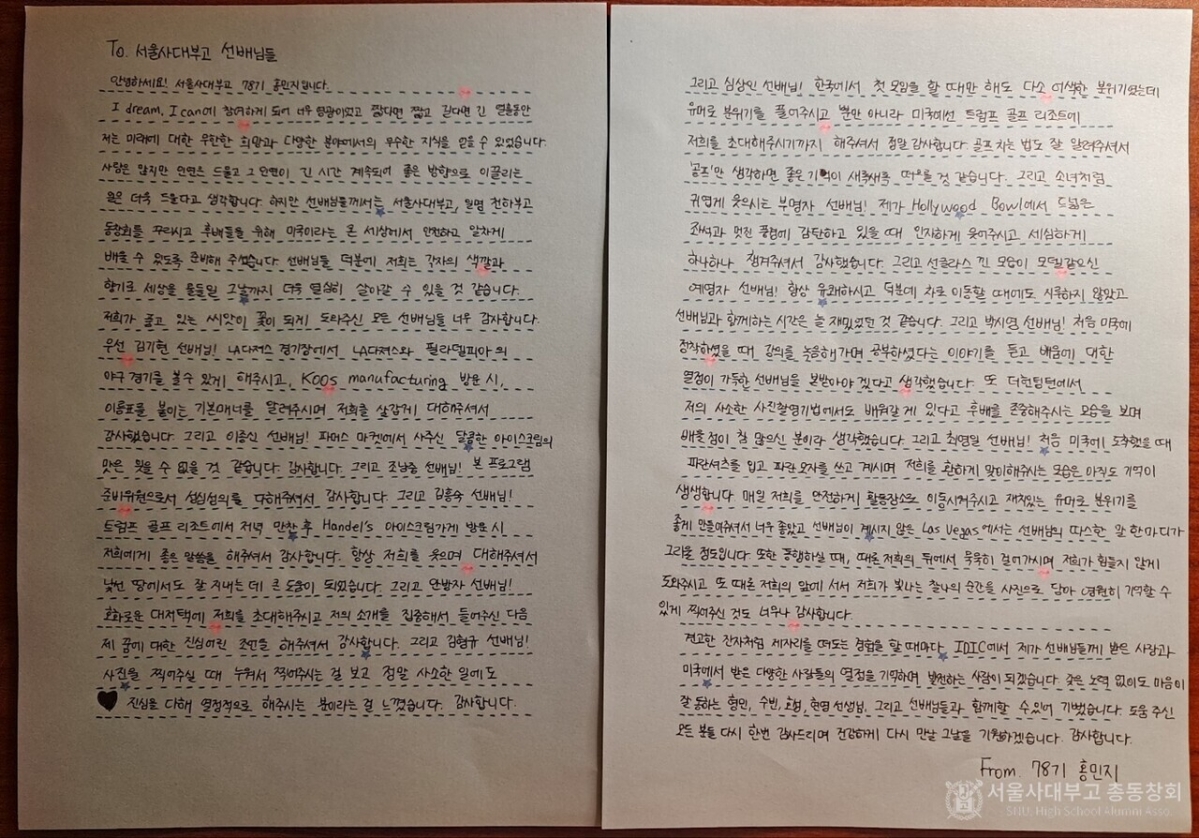 To. 서울사대부고 선배님들
안녕하세요! 서울사대부고 78기 홍민지입니다.
I dream, I can에 참여하게 되어 너무 영광이었고 짧다면 짧고 길다면 긴 열흘동안
저는 미래에 대한 무한한 희망과 다양한 분야에서의 무수한 지식을 얻을 수 있었습니다.
사람은 많지만 인연은 드물고 그 인연이 긴 시간 계속되어 좋은 방향으로 이끌리는
일은 더욱 드물다고 생각합니다. 하지만 선배님들께서는 서울사대부고, 일명 천하부고
동창회를 꾸리시고 후배들을 위해 미국이라는 온 세상에서 안전하고 알차게
배울 수 있도록 준비해 주셨습니다. 선배님들 덕분에 저희는 각자의 색깔과
향기로 세상을 물들일 그날까지 더욱 열심히 살아갈 수 있을 것 같습니다.
저희가 품고 있는 씨앗이 꽃이 되게 도와주신 모든 선배님들 너무 감사합니다.
우선 김기현 선배님! LA다저스 경기장에서 LA다저스와 필라델피아의
야구 경기를 볼 수 있게 해주시고, Koos manufacturing 방문 시,
이름표를 붙이는 기본매너를 알려주시며 저희를 살갑게 대해주셔서
감사했습니다. 그리고 이종신 선배님! 파머스 마켓에서 사주신 달콤한 아이스크림의
맛은 잊을 수 없을 것 같습니다. 감사합니다. 그리고 조남중 선배님! 본 프로그램
준비위원으로서 성심성의를 다해주셔서 감사합니다. 그리고 김홍숙 선배님!
트럼프 골프 리조트에서 저녁 만찬 후 Handel's 아이스크림가게 방문 시
저희에게 좋은 말씀을 해주셔서 감사합니다. 항상 저희를 웃으며 대해주셔서
낯선 땅에서도 잘 지내는 데 큰 도움이 되었습니다. 그리고 안방자 선배님!
호화로운 대저택에 저희를 초대해주시고 저의 소개를 집중해서 들어주신 다음
제 꿈에 대한 진심어린 조언을 해주셔서 감사합니다. 그리고 김형규 선배님!
사진을 찍어주실 때 누워서 찍어주시는 걸 보고 정말 사소한 일에도
진심을 다해 열정적으로 해주시는 분이라는 걸 느꼈습니다. 감사합니다.
그리고 심상인 선배님! 한국에서 첫 모임을 할 때만 해도 다소 어색한 분위기였는데
유머로 분위기를 풀어주시고 뿐만 아니라 미국에선 트럼프 골프 리조트에
저희를 초대해주시기까지 해주셔서 정말 감사합니다. 골프 치는 법도 잘 알려주셔서
'골프'만 생각하면 좋은 기억이 새록새록 떠오를 것 같습니다. 그리고 소녀처럼
귀엽게 웃으시는 부명자 선배님! 제가 Hollywood Bowl에서 드넓은
좌석과 멋진 풍경에 감탄하고 있을 때 인자하게 웃어주시고 세심하게
하나하나 챙겨주셔서 감사했습니다. 그리고 선글라스 낀 모습이 모델같으신
예영자 선배님! 항상 유쾌하시고 덕분에 차로 이동할 때에도 지루하지 않았고
선배님과 함께하는 시간은 늘 재밌었던 것 같습니다. 그리고 박시영 선배님! 처음 미국에
정착하셨을 때 강의를 녹음해가며 공부하셨다는 이야기를 듣고 배움에 대한
열정이 가득한 선배님을 본받아야겠다고 생각했습니다. 또 더헌팅턴에서
저의 사소한 사진촬영기법에서도 배워갈 게 있다고 후배를 존중해주시는 모습을 보며
배울 점이 참 많으신 분이라 생각했습니다. 그리고 최영일 선배님! 처음 미국에 도착했을 때
파란셔츠를 입고 파란 모자를 쓰고 계시며 저희를 환하게 맞이해주시는 모습은 아직도 기억이
생생합니다. 매일 저희를 안전하게 활동장소로 이동시켜주시고 재치있는 유머로 분위기를
좋게 만들어주셔서 너무 좋았고 선배님이 계시지 않은 Las Vegas에서는 선배님의 따스한 말 한마디가
그리울 정도입니다. 또한 동행하실 때, 때론 저희의 뒤에서 묵묵히 걸어가시며 저희가 힘들지 않게
도와주시고 또 때론 저희의 앞에 서서 저희가 빛나는 찰나의 순간을 사진으로 담아 영원히 기억할 수
있게 찍어주신 것도 너무나 감사합니다.
견고한 잔자처럼 제자리를 떠도는 경험을 할 때마다, IDIC에서 제가 선배님들께 받은 사랑과
미국에서 받은 다양한 사람들의 열정을 기억하며 발전하는 사람이 되겠습니다. 갖은 노력 없이도 마음이
잘 통하는 형민, 수빈, 현영 선생님, 그리고 선배님들과 함께할 수 있어 기뻤습니다. 도움 주신
모든 분들 다시 한번 감사드리며 건강하게 다시 만날 그날을 기원하겠습니다. 감사합니다.
From. 78기 홍민지
서울사대부고 총동창회
SNU. High School Alumni Asso.